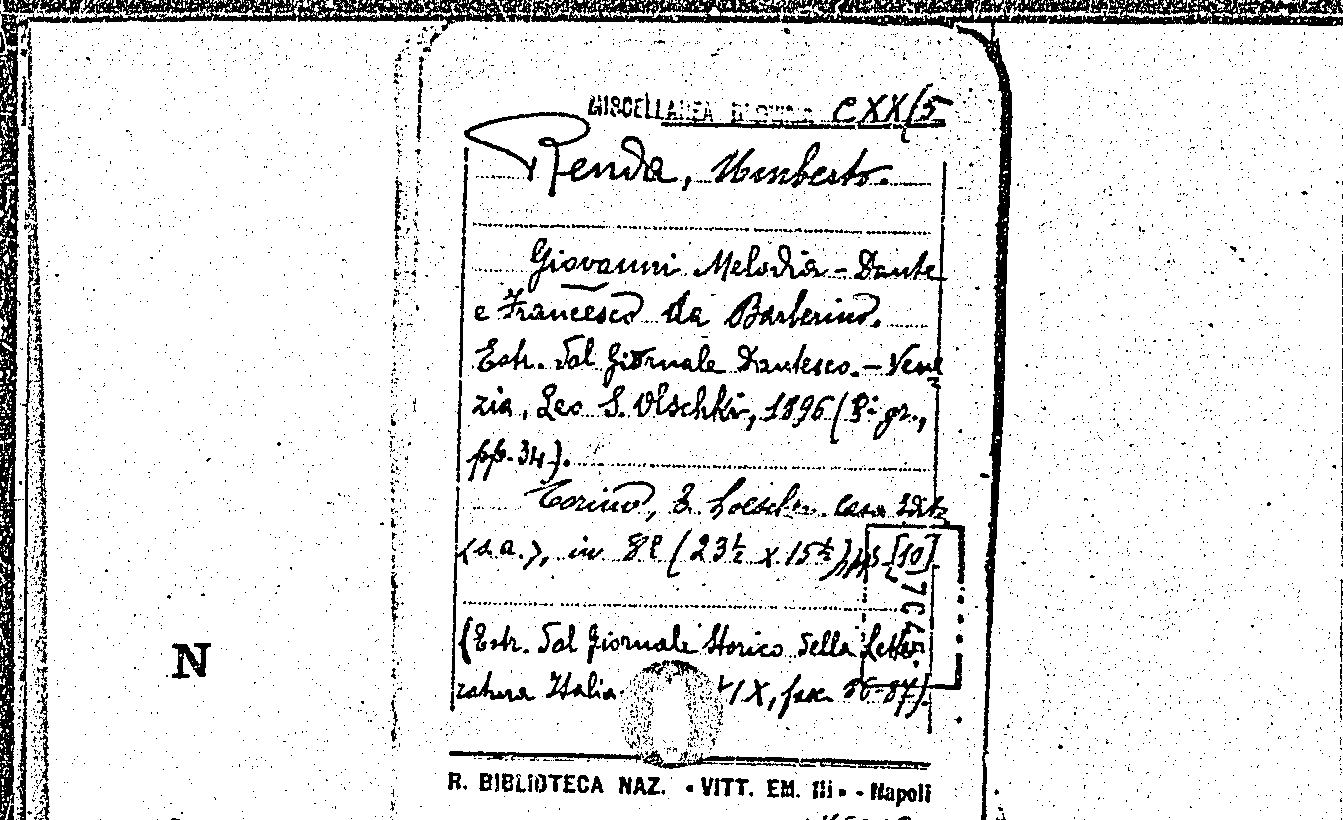 MISCELLANEA CXX/5
Renda, Umberto.
Giovanni Melodia - Dante
e Francesco da Barberino.
Estr. dal Giornale Dantesco. - Vene
zia, Leo S. Olschki, 1896 (8º gr.,
pp. 34).
Torino, E. Loescher casa edit.
(s.a.), in 8º (23½ x 15½) pp. [10].
(Estr. dal Giornale Storico della Lette
ratura Italia IX, fasc. 86-87).
N
R. BIBLIOTECA NAZ. • VITT. EM. III • - Napoli